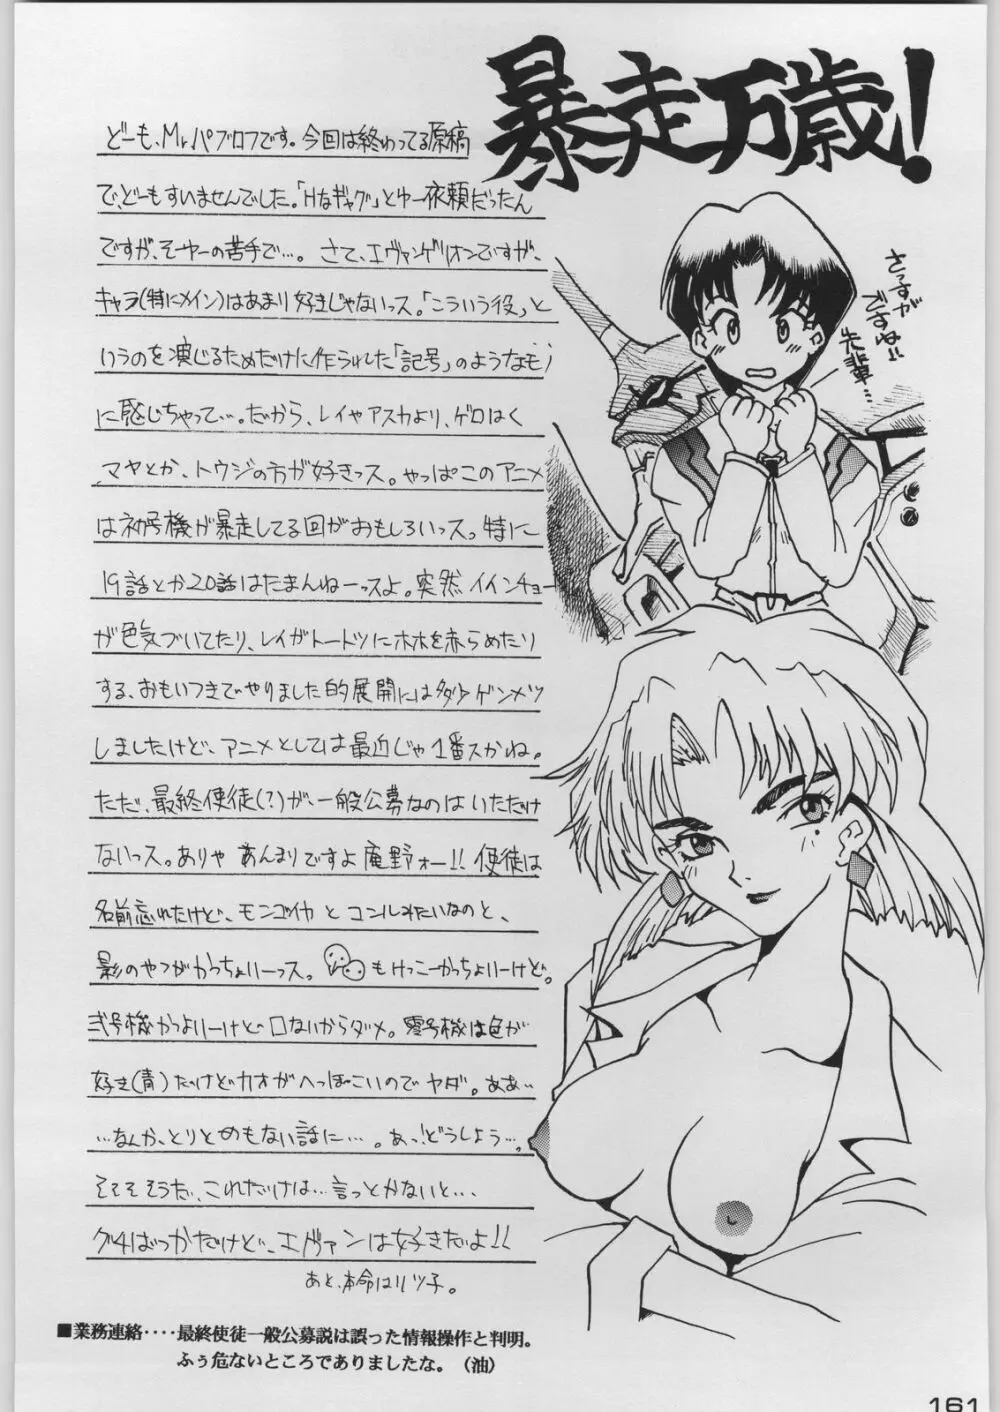 暴走万歳!
どーも、Mr.パブロフです。今回は終わってる原稿
で、どーもすいませんでした。「Hなギャグ」とゆー依頼だったん
ですが、そーゆーの苦手で…。さて、エヴァンゲリオンですが、
キャラ(特にメイン)はあまり好きじゃないっス。「こういう役」と
いうのを演じるためだけに作られた「記号」のようなモノ
に感じちゃって…。だから、レイやアスカより、ゲロはく
マヤとか、トウジの方が好きっス。やっぱこのアニメ
は初号機が暴走してる回がおもしろいっス。特に
19話とか20話はたまんねーっスよ。突然イインチョー
が色気づいてたり、レイがトードツにホホを赤らめたり
する、おもいつきでやりました的展開には多少ゲンメツ
しましたけど、アニメとしては最近じゃ1番スかね。
ただ、最終使徒(?)が、一般公募なのはいただけ
ないっス。ありゃあんまりですよ庵野ォー!!使徒は
名前忘れたけど、モンゴイカとコンルみたいなのと、
影のやつがかっちょいーっス。もけっこーかっちょいーけど。
弐号機かっよいーけど口ないからダメ。零号機は色が
好き(青)だけどカオがへっぽこいのでヤダ。ああ…
…なんか、とりとめもない話に…。あっ!どうしよう…。
そそそそうだ、これだけは…言っとかないと…
グチばっかだけど、エヴァンは好きだよ!!
あと、本命はリツ子。
さっすが
ですね!!
先輩…
■業務連絡‥‥最終使徒一般公募説は誤った情報操作と判明。
ふぅ危ないところでありましたな。(油)
161